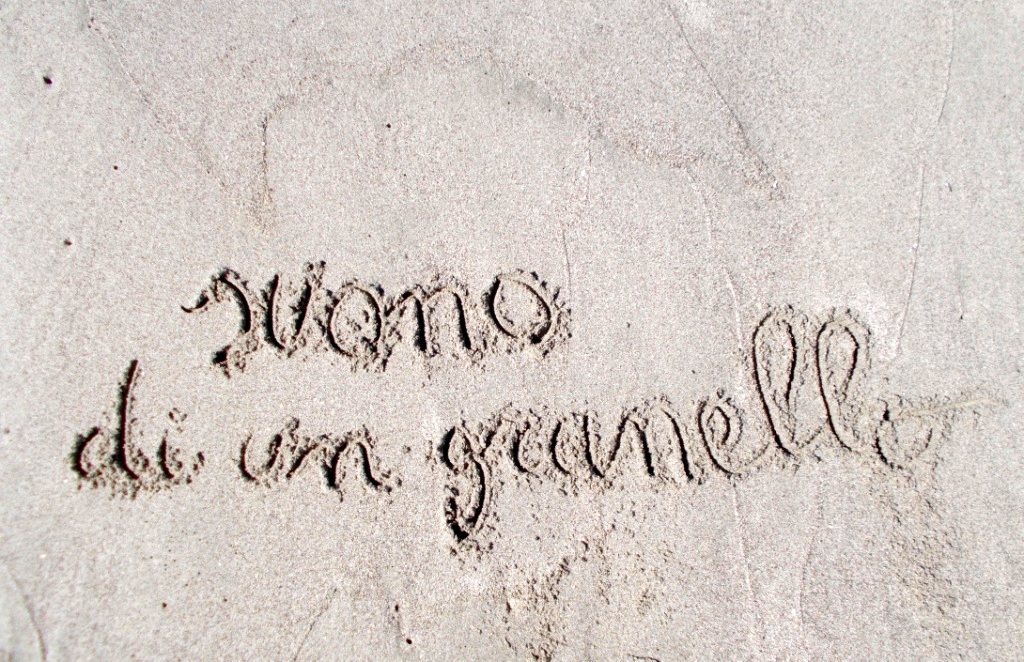 suono
di un granello